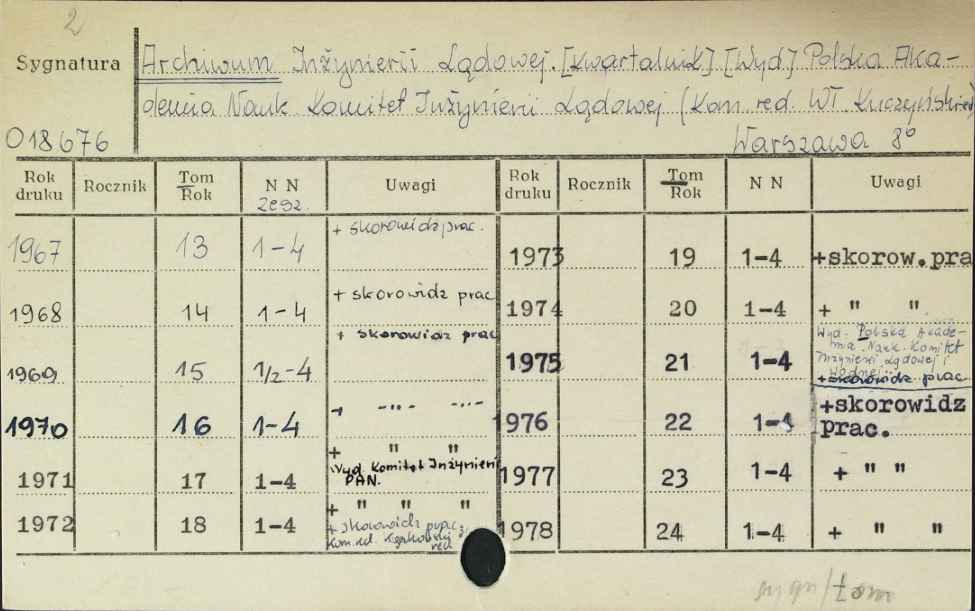 2
Sygnatura
Archiwum Inżynierii Lądowej. [Kwartalnik] [Wyd.] Polska Aka-
demia Nauk Komitet Inżynierii Lądowej (Kom. red. Wł. Kuczyński
O18676
Warszawa 8°
Rok druku Rocznik Tom Rok N N zesz. Uwagi Rok druku Rocznik Tom Rok N N Uwagi
1967 13 1-4 + skorowidz prac. 1973 19 1-4 +skorow.pra
1968 14 1-4 + skorowidz prac 1974 20 1-4 + " "
1969 15 1/2-4 + skorowidz prac 1975 21 1-4 Wyd. Polska Akade-
mia Nauk. Komitet
Inżynierii Lądowej i
Wodnej
+skorowidz prac
1970 16 1-4 + -"- -"- 1976 22 1-4 +skorowidz
prac.
1971 17 1-4 + " " Wyd. Komitet Inżynierii 1977 23 1-4 + " "
PAN.
1972 18 1-4 + " " " 1978 24 1-4 + " "
+ skorowidz prac
Kom. red.
sygn/tom